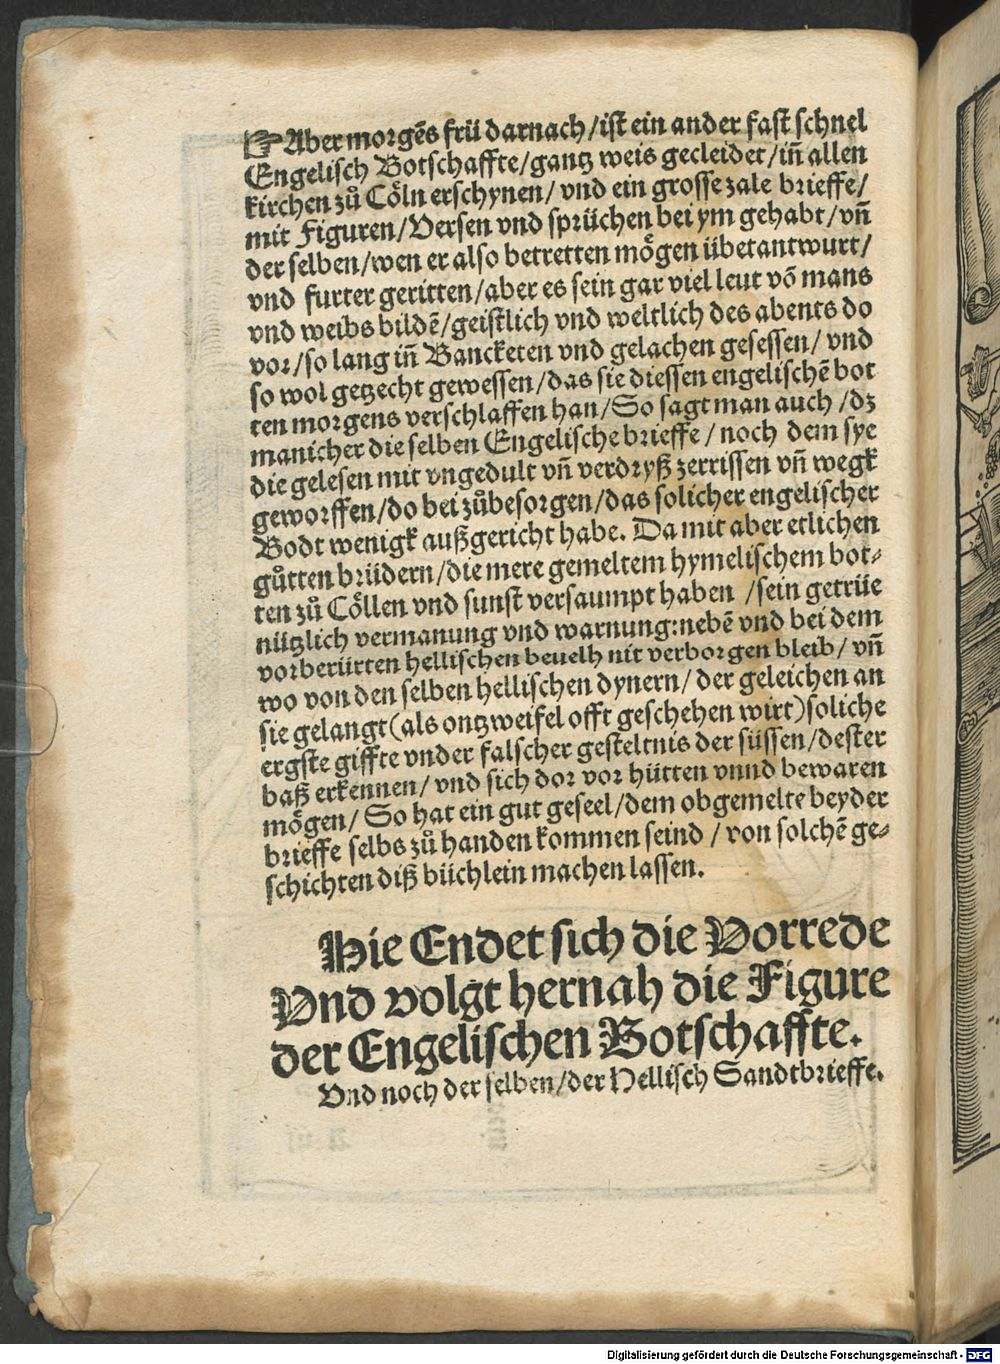 ☞ Aber morgẽs frü darnach/ist ein ander fast schnel
Engelisch Botschaffte/gantz weis gecleidet/iñ allen
kirchen zů Cöln erschynen/ vnd ein grosse zale brieffe/
mit Figuren/Versen vnd sprüchen bei ym gehabt/vñ
der selben/wen er also betretten mögen übetantwurt/
vnd furter geritten/aber es sein gar viel leut võ mans
vnd weibs bildẽ/geistlich vnd weltlich des abents do
vor/so lang iñ Bancketen vnd gelachen gesessen/ vnd
so wol getzecht gewessen/das sie diessen engelischẽ bot
ten morgens verschlaffen han/So sagt man auch /dz
manicher die selben Engelische brieffe / noch dem sye
die gelesen mit vngedult vñ verdryß zerrissen vñ wegk
geworffen/do bei zůbesorgen/das solicher engelischer
Bodt wenigk außgericht habe. Da mit aber etlichen
gůtten brüdern/die mere gemeltem hymelischem bot-
ten zů Cöllen vnd sunst versaumpt haben /sein getrüe
nützlich vermanung vnd warnung:nebẽ vnd bei dem
vorberürten hellischen beuelh nit verborgen bleib/ vñ
wo von den selben hellischen dynern/ der geleichen an
sie gelangt(als ontzweifel offt geschehen wirt)soliche
ergste giffte vnder falscher gesteltnis der süssen/dester
baß erkennen/ vnd sich dor vor hütten vnnd bewaren
mögen/ So hat ein gut geseel/dem obgemelte beyder
brieffe selbs zů handen kommen seind / von solchẽ ge-
schichten diß büchlein machen lassen.
Hie Endet sich die Vorrede
Vnd volgt hernah die Figure
der Engelischen Botschaffte.
Vnd noch der selben/der Hellisch Sandtbrieffe.
Digitalisierung gefördert durch die Deutsche Forschungsgemeinschaft - DFG